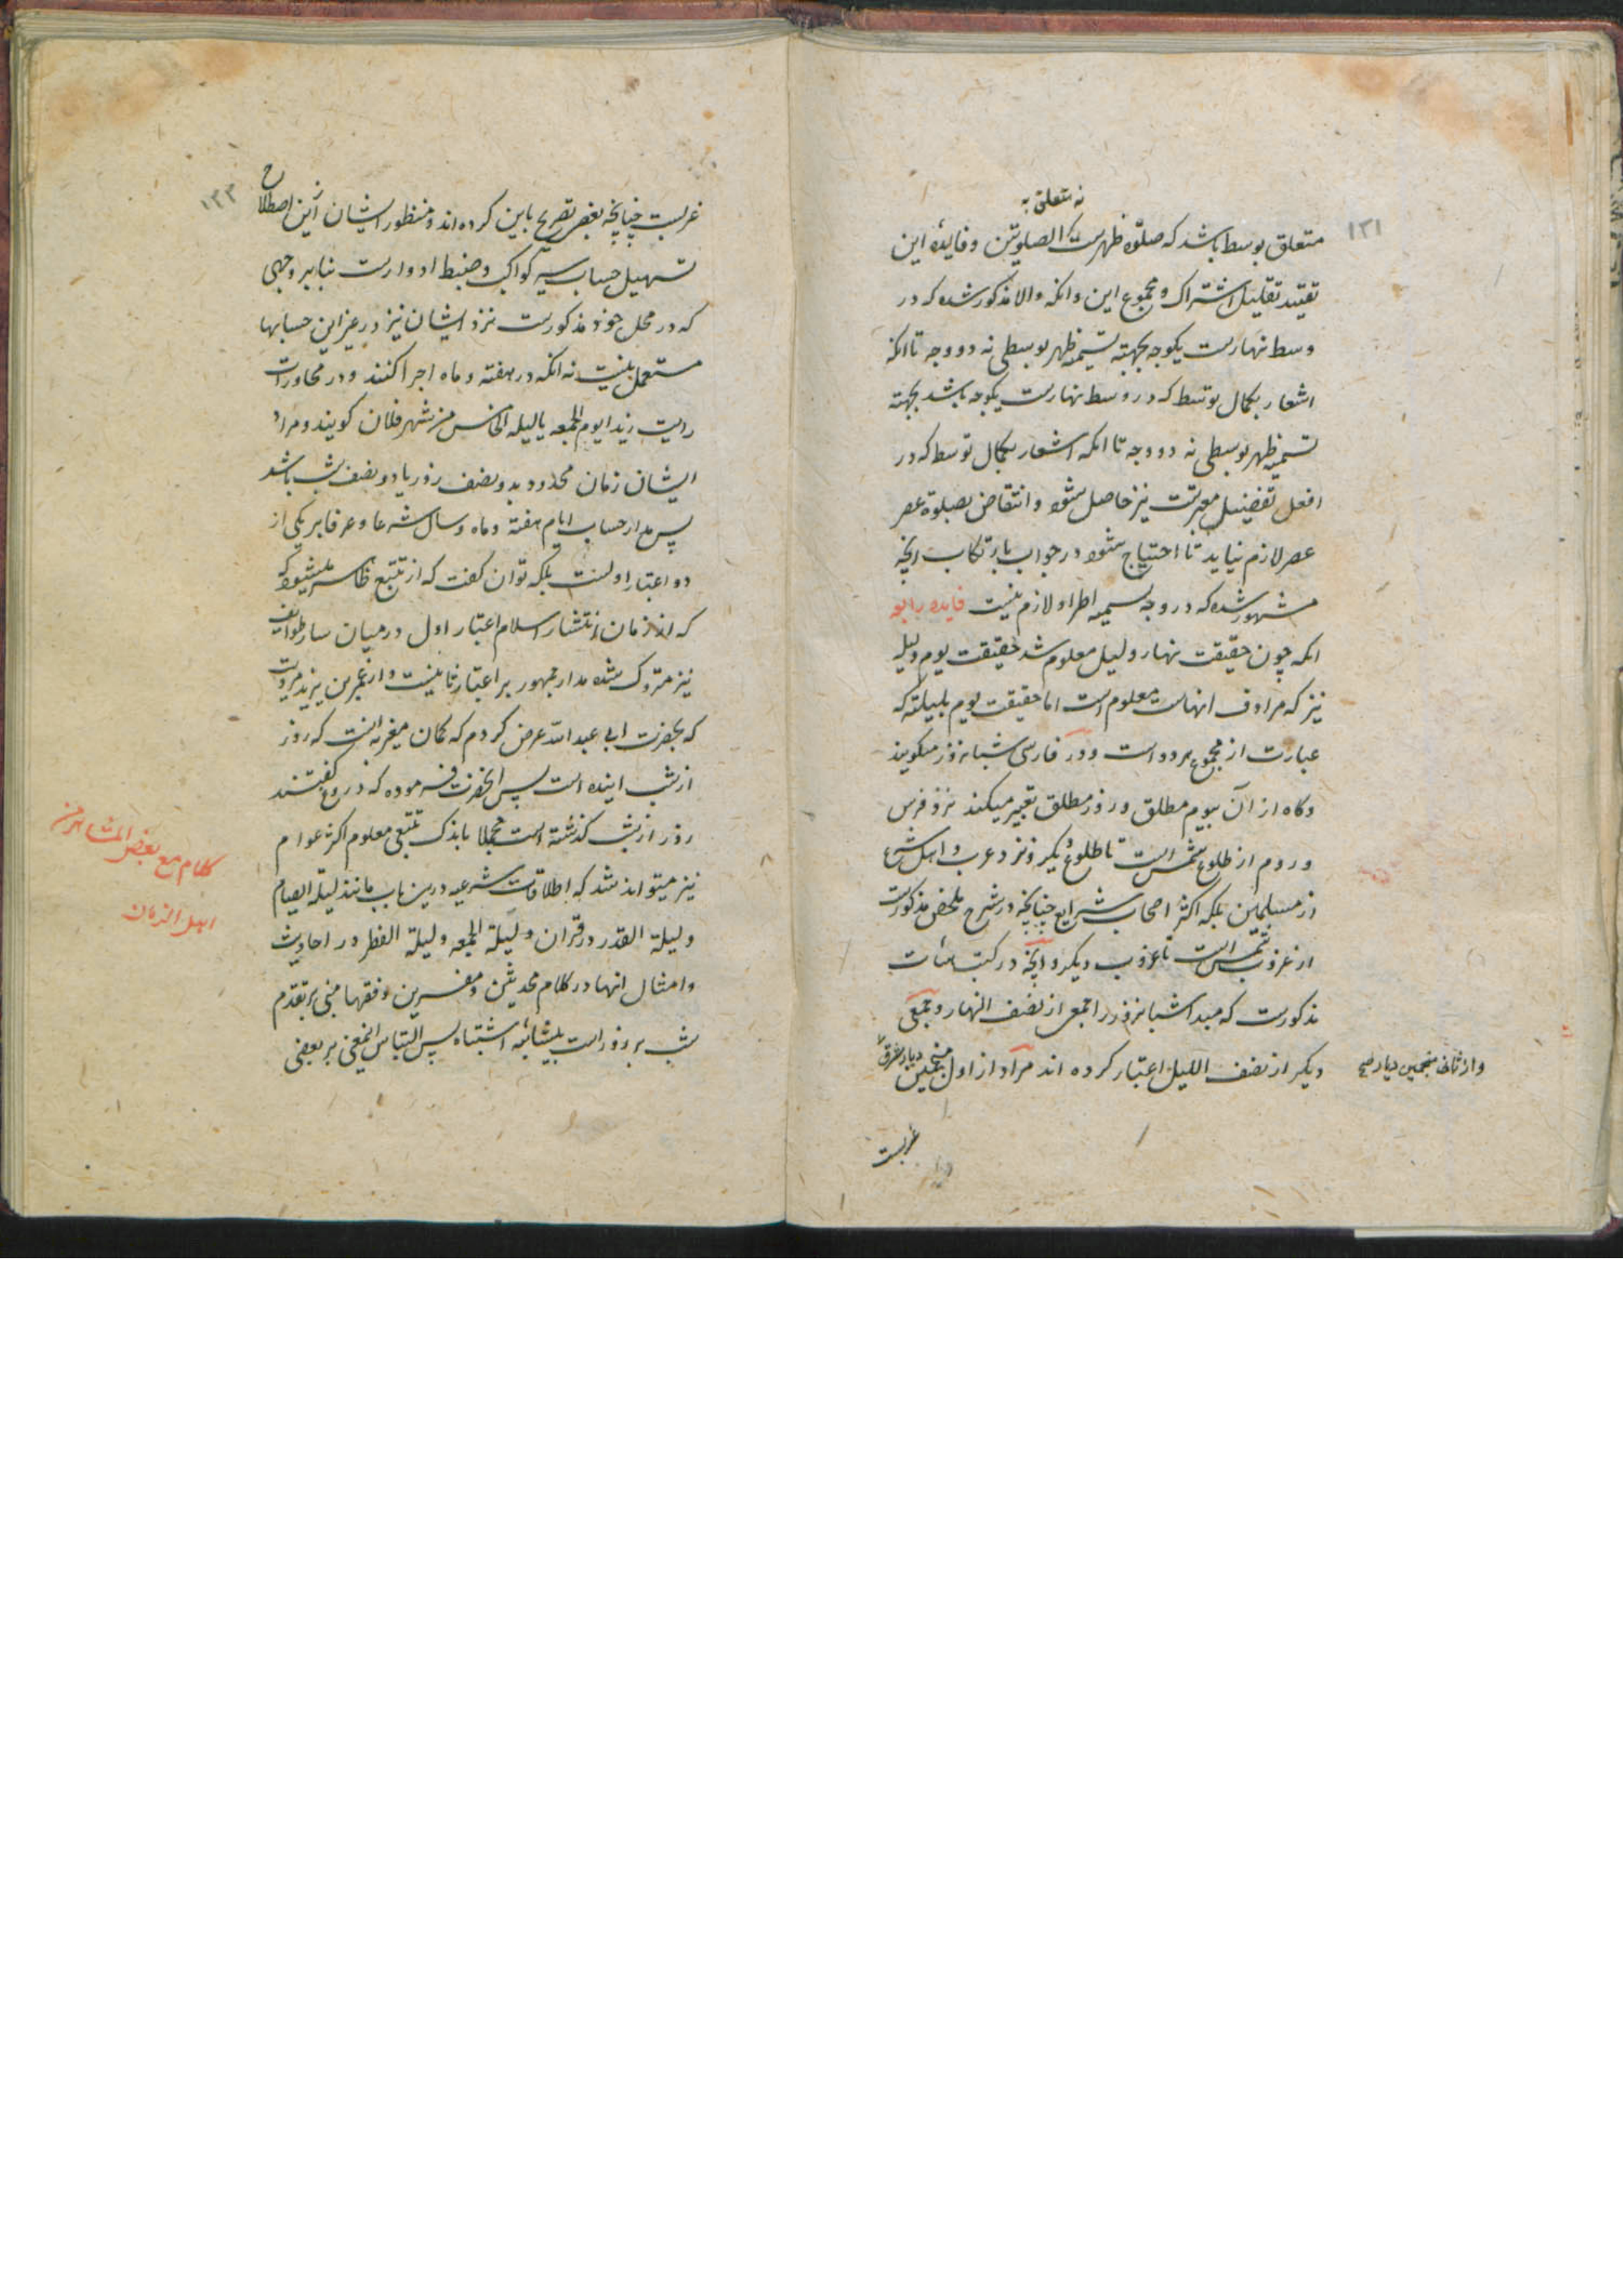 ۱۳۱
نه متعلق به
متعلق بوسط باشد که صلوٰة ظهرست کالصلوتین و فایدهٔ این
تقیید تقلیل اشتراک و مجموع این و انکه والا مذکور شده که در
وسط نهارست یکوجه بجهته تسمیه ظهر بوسطی نه دو وجه تا انکه
اشعار بکمال توسط که در وسط نهارست یکوجه باشد بجهته
تسمیه ظهر بوسطی نه دو وجه تا انکه اشعار بکمال توسط که در
افعل تفضیل معبرتست نیز حاصل شود و انتقاض بصلوة عصر
عصر لازم نیاید تا احتیاج شود در جواب بارتکاب انچه
مشهور شده که در وجه تسمیه اطراد لازم نیست فایده رابعه
انکه چون حقیقت نهار و لیل معلوم شد حقیقت یوم و لیله
نیز که مرادف انهاست معلوم است اما حقیقت یوم بلیلته که
عبارت از مجموع هر دو است و در فارسی شبانروز میکویند
و کاه از آن بیوم مطلق و روز مطلق تعبیر میکنند نزد فرس
و روم از طلوع شمس است تا طلوع دیکر و نزد عرب و اهل شرع
از مسلمین بلکه اکثر اصحاب شرایع چنانچه در شرح ملخص مذکورست
از غروب شمس است تا غروب دیکر و انچه در کتب هیأت
مذکورست که مبدا شبانروز را جمعی از نصف النهار و جمعی
دیکر از نصف اللیل اعتبار کرده اند مراد از اول منجمین دیار شرق
و از ثانی منجمین دیار
غربست
۱۳۲
غربست چنانچه بعضی تصریح باین کرده اند و منظور ایشان ازین اصطلاح
تسهیل حساب سیر کواکب و ضبط ادوارست بنابر وجهی
که در محل خود مذکورست نزد ایشان نیز در غیر این حسابها
مستعمل نیست نه انکه در هفته و ماه اجرا کنند و در محاورات
رایت زیدا یوم الجمعه یا لیله الخامس من شهر فلان کویند و مراد
ایشان زمان محدود بدو نصف روز یا دو نصف شب باشد
پس مدار حساب ایام هفته و ماه و سال شرعا و عرفا بر یکی از
دو اعتبار اولست بلکه توان کفت که از تتبع ظاهر میشود که
که از زمان انتشار اسلام اعتبار اول در میان سایر طوایف
نیز متروک شده مدار جمهور بر اعتبار ثانیست و از عمر بن یزید مرویست
که بحضرت ابی عبد الله عرض کردم که کمان مغیریه انست که روز
از شب اینده است پس انحضرت فرموده که دروغ کفتند
روز از شب کذشته است مجملا باندک تتبعی معلوم اکثر عوام
نیز میتواند شد که اطلاقات شرعیه درین باب مانند لیلة الصیام
و لیلة القدر در قران و لیلة الجمعه و لیلة الفطر در احادیث
و امثال انها در کلام محدثین و مفسرین و فقها مبنی بر تقدم
شب بر روز است بیشائبه اشتباه پس التباس اینمعنی بر بعضی
کلام مع بعض المشاهیر من
اهل الزمان